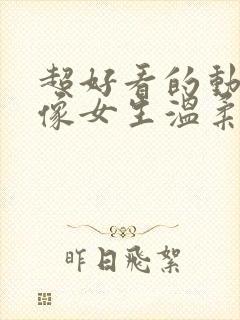 超好看的動
像女生溫柔
昨日飛絮